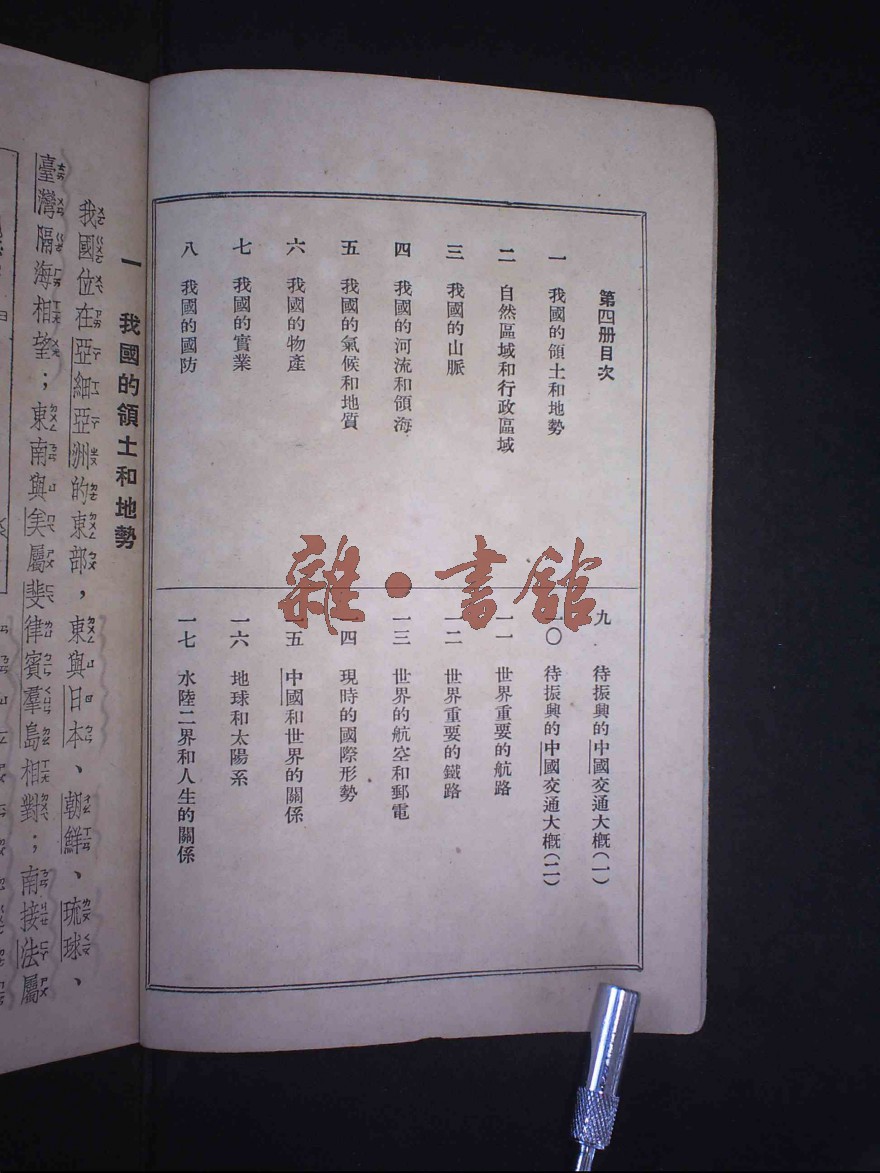 第四册目次
一 我國的領土和地勢
二 自然區域和行政區域
三 我國的山脈
四 我國的河流和領海
五 我國的氣候和地質
六 我國的物產
七 我國的實業
八 我國的國防
九 待振興的中國交通大概(一)
一〇 待振興的中國交通大概(二)
一一 世界重要的航路
一二 世界重要的鐵路
一三 世界的航空和郵電
一四 現時的國際形勢
一五 中國和世界的關係
一六 地球和太陽系
一七 水陸二界和人生的關係
雜·書館
一 我國的領土和地勢
我國位在亞細亞洲的東部，東與日本、朝鮮、琉球、
臺灣隔海相望；東南與美屬斐律賓羣島相對；南接法屬